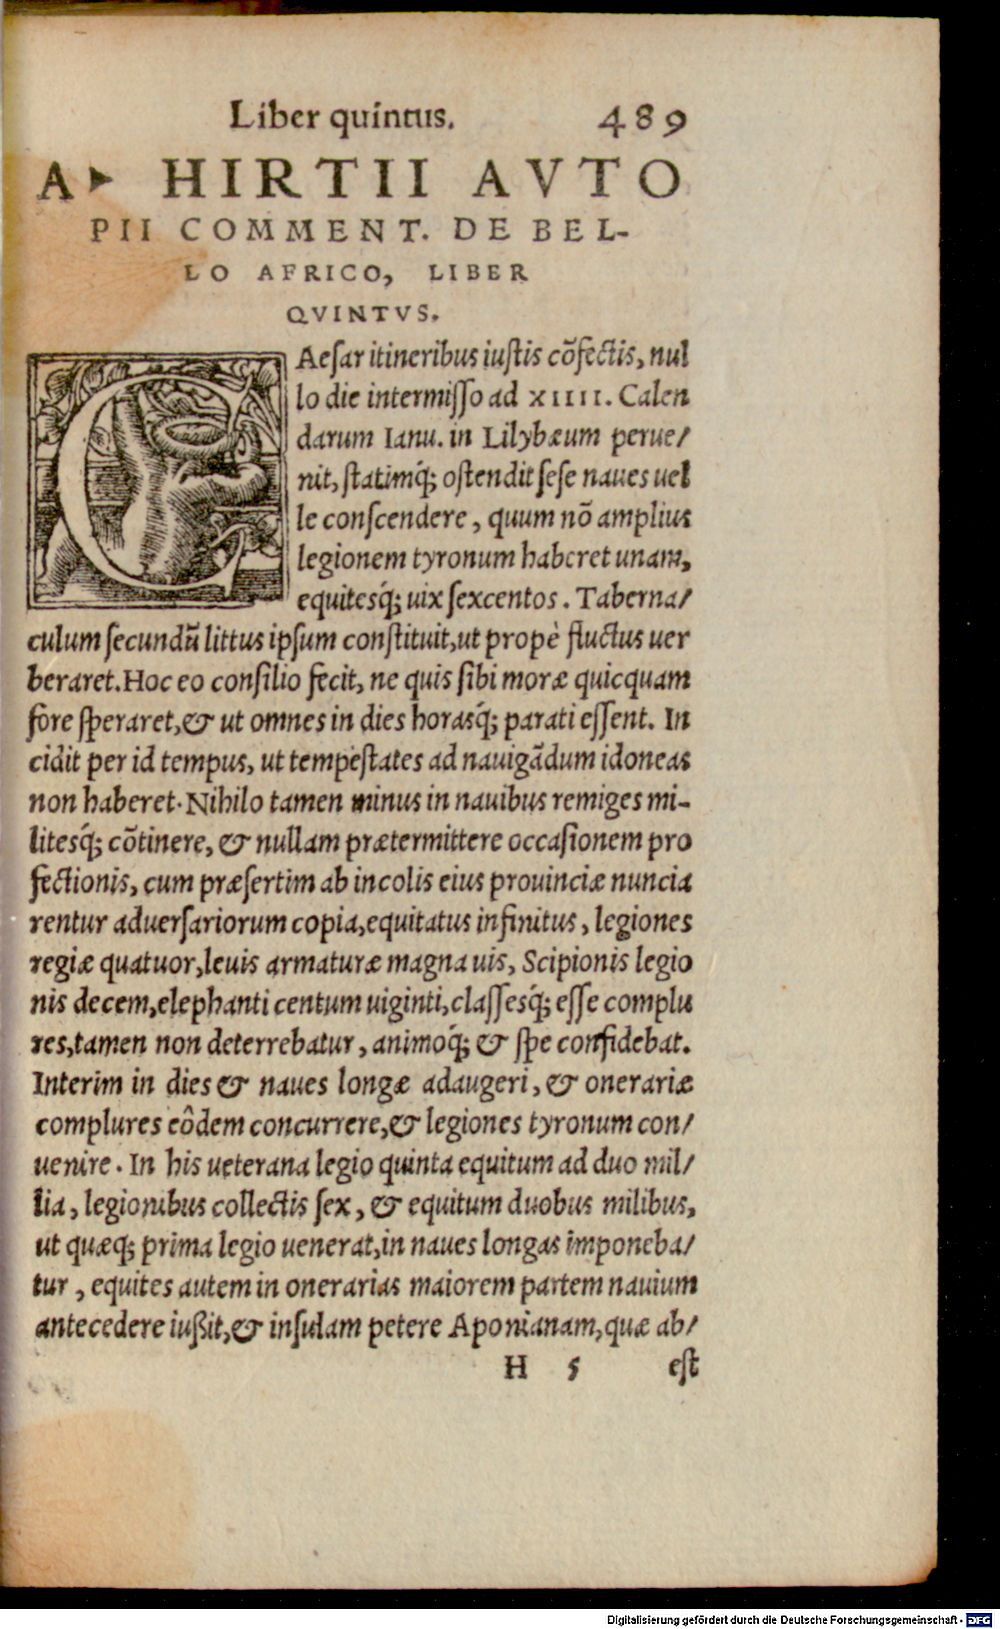 Liber quintus. 489
A▸ HIRTII AVTO
PII COMMENT. DE BEL-
LO AFRICO, LIBER
QVINTVS.
CAeſar itineribus iuſtis cõfectis, nul
lo die intermiſſo ad XIIII. Calen
darum Ianu. in Lilybæum perue/
nit, ſtatimq́; oſtendit ſeſe naues uel
le conſcendere, quum nõ amplius
legionem tyronum haberet unam,
equitesq́; uix ſexcentos. Taberna/
culum ſecundũ littus ipſum conſtituit, ut propè fluctus uer
beraret. Hoc eo conſilio fecit, ne quis ſibi moræ quicquam
fore ſperaret, & ut omnes in dies horasq́; parati eſſent. In
cidit per id tempus, ut tempeſtates ad nauigãdum idoneas
non haberet. Nihilo tamen minus in nauibus remiges mi-
litesq́; cõtinere, & nullam prætermittere occaſionem pro
fectionis, cum præſertim ab incolis eius prouinciæ nuncia
rentur aduerſariorum copia, equitatus infinitus, legiones
regiæ quatuor, leuis armaturæ magna uis, Scipionis legio
nis decem, elephanti centum uiginti, claſſesq́; eſſe complu
res, tamen non deterrebatur, animoq́; & ſpe confidebat.
Interim in dies & naues longæ adaugeri, & onerariæ
complures eôdem concurrere, & legiones tyronum con/
uenire. In his ueterana legio quinta equitum ad duo mil/
lia, legionibus collectis ſex, & equitum duobus milibus,
ut quæq; prima legio uenerat, in naues longas imponeba/
tur, equites autem in onerarias maiorem partem nauium
antecedere iußit, & inſulam petere Aponianam, quæ ab/
H 5 eſt
Digitalisierung gefördert durch die Deutsche Forschungsgemeinschaft - DFG